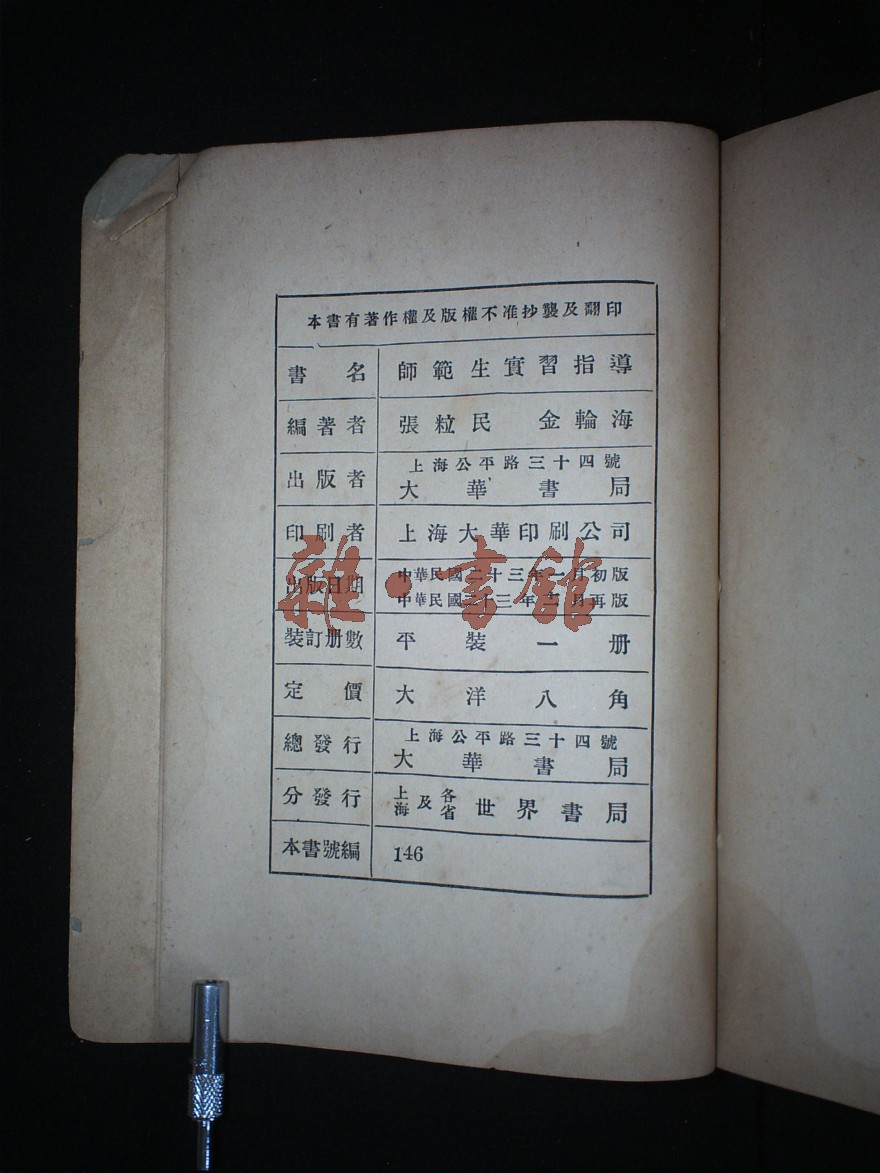 本書有著作權及版權不准抄襲及翻印
書名 師範生實習指導
編著者 張粒民 金輪海
出版者 上海公平路三十四號
大華書局
印刷者 上海大華印刷公司
出版日期 中華民國二十三年一月初版
中華民國二十三年二月再版
裝訂册數 平裝一册
定價 大洋八角
總發行 上海公平路三十四號
大華書局
分發行 上海及各省世界書局
本書號編 146
雜·書館